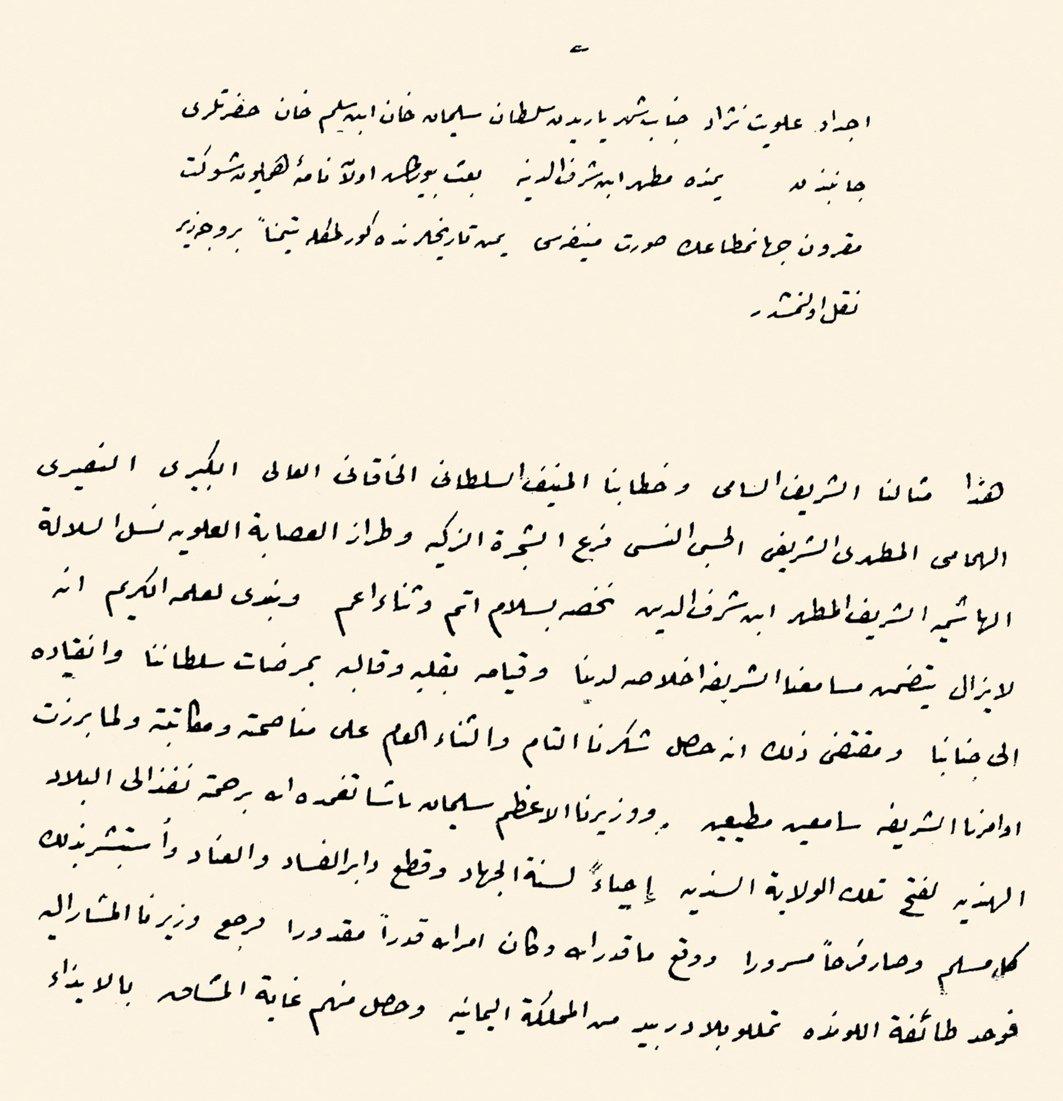 اجداد علويت نژاد جناب شهرياريدن سلطان سليمان خان ابن سليم خان حضرتلرى
جانبندن يمنده مطهر ابن شرف الدينه بعث بيوريلان اولاً نامهٔ همايون شوكت
مقرون جهانمطاعك صورت منيفه‌سى يمن تاريخلرنده كورلمكله تيمناً بروجه زير
نقل اولنمشدر
هذا مثالنا الشريف السامى وخطابنا المنيف السلطانى الخاقانى العالى الكبيرى النصيرى
الهمامى المطهرى الشريفى الحسبى النسبى فرع الشجرة الزكيه وطراز العصابة العلويه نسل السلالة
الهاشميه الشريف المطهر ابن شرف الدين نخصه بسلام اتم وثناء اعم ونبدى لعلمه الكريم انه
لايزال يتضمن مسامعنا الشريفه اخلاصه لدينا وقيامه بقلبه وقالبه بمرضات سلطاننا وانقياده
الى جنابنا ومقتضى ذلك انه حصل شكرنا التام والثناء العام على مناصحته ومكاتبته ولما برزت
اوامرنا الشريفه سامعين مطيعين ووزيرنا الاعظم سليمان پاشا تغمده الله برحمته نفذ الى البلاد
الهنديه لفتح تلك الولاية السنديه إحياءً لسنة الجهاد وقطع دابر الفساد والعناد وأستبشر بذلك
كل مسلم وصار فرحاً مسرورا ووقع ما قدر الله وكان امر الله قدراً مقدورا فرجع وزيرنا المشار اليه
فوجد طائفة اللونده تملكو بلاد زبيد من المملكة اليمانيه وحصل منهم غاية المشاق بالايذاء